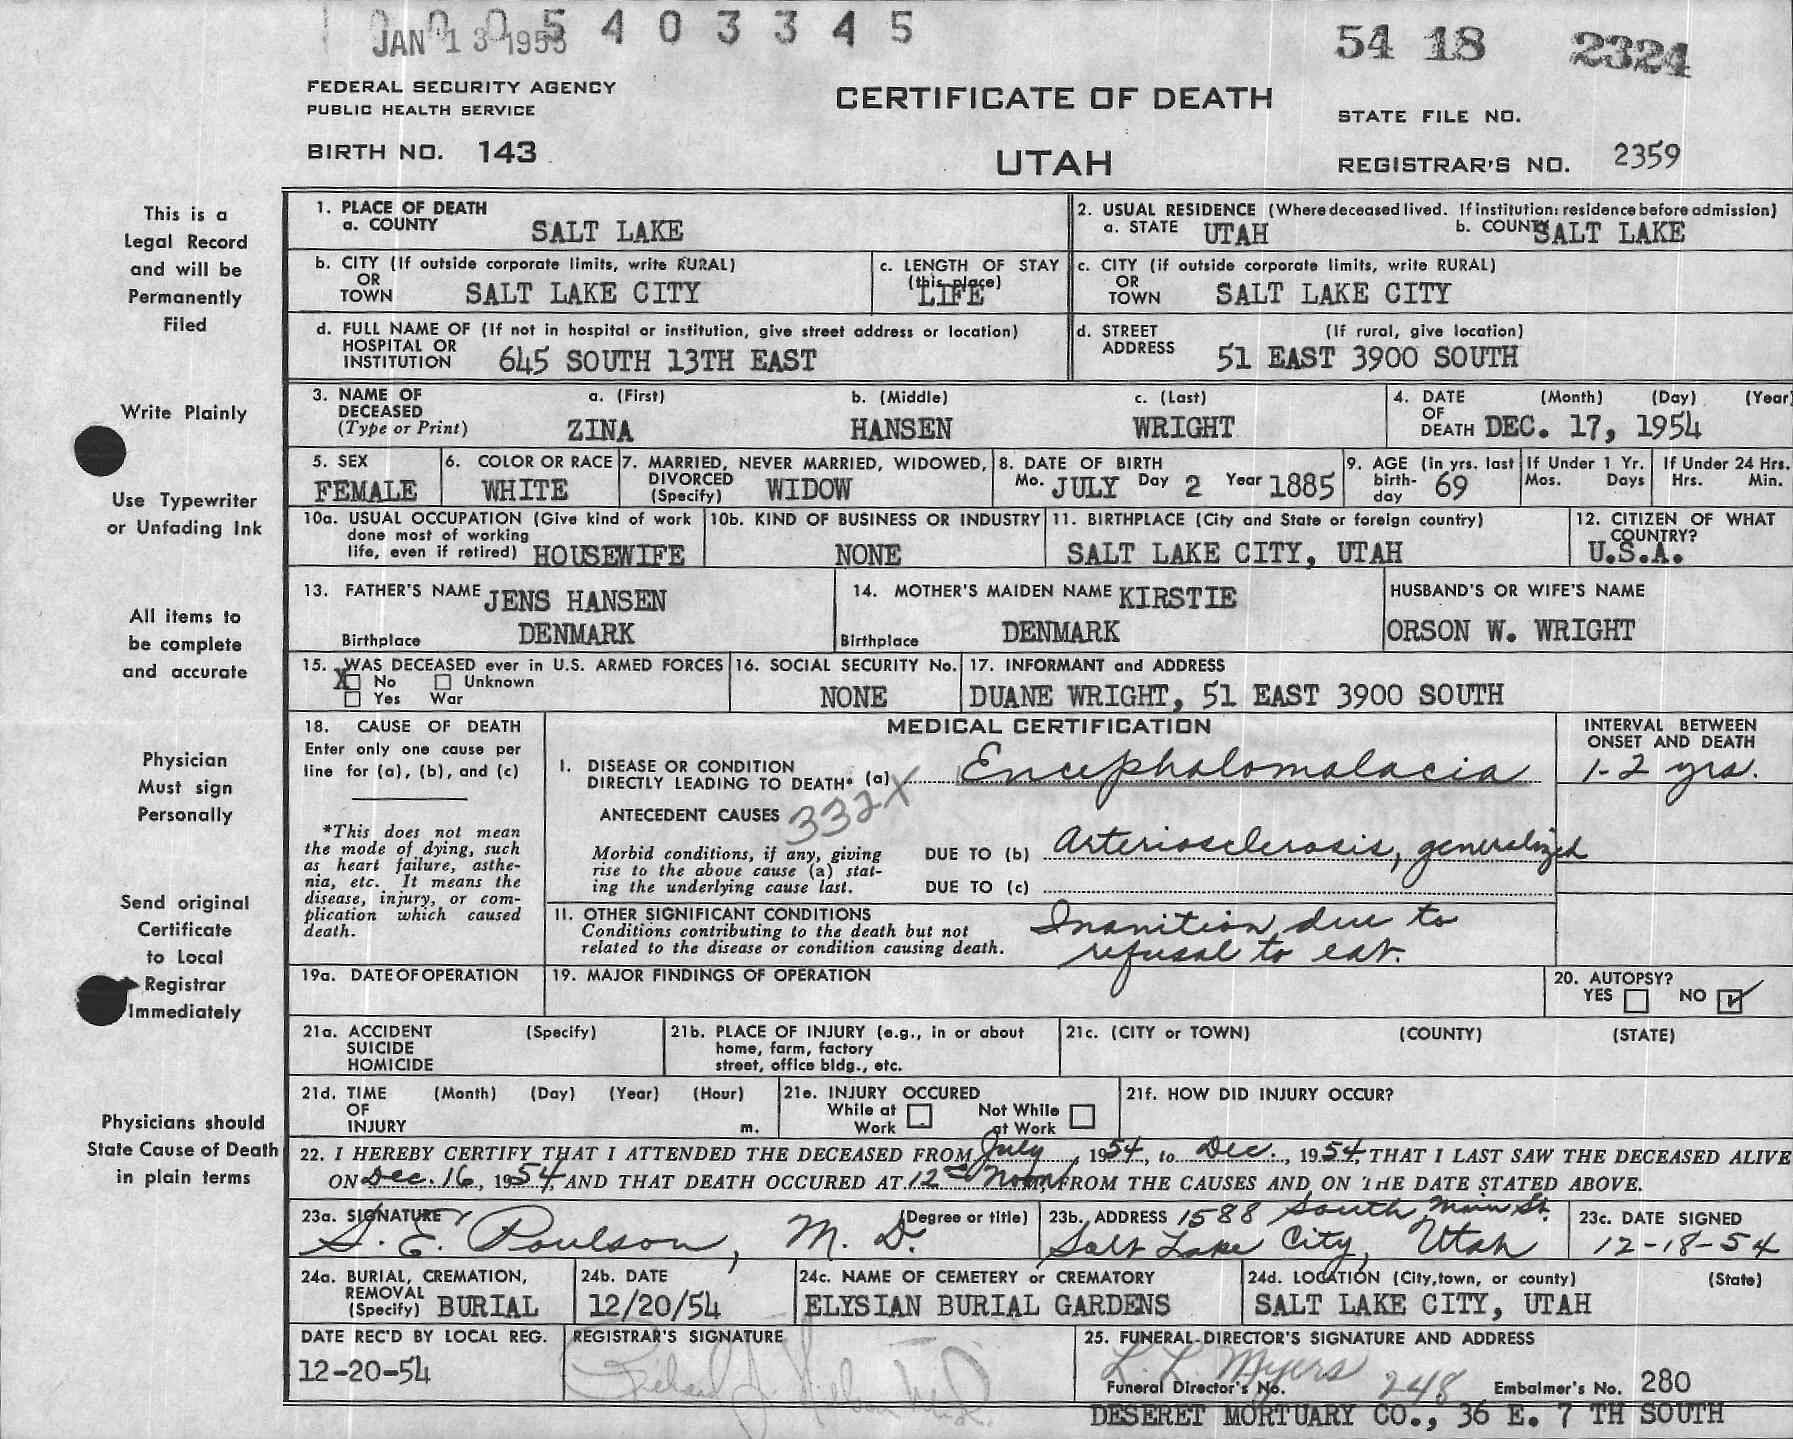 0005403345
JAN 13 1955
54 18 2324
FEDERAL SECURITY AGENCY
PUBLIC HEALTH SERVICE
CERTIFICATE OF DEATH
STATE FILE NO.
BIRTH NO. 143
UTAH
REGISTRAR'S NO. 2359
This is a
Legal Record
and will be
Permanently
Filed
Write Plainly
Use Typewriter
or Unfading Ink
All items to
be complete
and accurate
Physician
Must sign
Personally
Send original
Certificate
to Local
Registrar
Immediately
Physicians should
State Cause of Death
in plain terms
1. PLACE OF DEATH
a. COUNTY SALT LAKE
2. USUAL RESIDENCE (Where deceased lived. If institution: residence before admission)
a. STATE UTAH b. COUNTY SALT LAKE
b. CITY (If outside corporate limits, write RURAL)
OR
TOWN SALT LAKE CITY
c. LENGTH OF STAY
(this place)
LIFE
c. CITY (if outside corporate limits, write RURAL)
OR
TOWN SALT LAKE CITY
d. FULL NAME OF (If not in hospital or institution, give street address or location)
HOSPITAL OR
INSTITUTION 645 SOUTH 13TH EAST
d. STREET (If rural, give location)
ADDRESS 51 EAST 3900 SOUTH
3. NAME OF a. (First) b. (Middle) c. (Last)
DECEASED
(Type or Print) ZINA HANSEN WRIGHT
4. DATE (Month) (Day) (Year)
OF
DEATH DEC. 17, 1954
5. SEX
FEMALE
6. COLOR OR RACE
WHITE
7. MARRIED, NEVER MARRIED, WIDOWED,
DIVORCED
(Specify) WIDOW
8. DATE OF BIRTH
Mo. JULY Day 2 Year 1885
9. AGE (in yrs. last
birth-
day 69
If Under 1 Yr.
Mos. Days
If Under 24 Hrs.
Hrs. Min.
10a. USUAL OCCUPATION (Give kind of work
done most of working
life, even if retired) HOUSEWIFE
10b. KIND OF BUSINESS OR INDUSTRY
NONE
11. BIRTHPLACE (City and State or foreign country)
SALT LAKE CITY, UTAH
12. CITIZEN OF WHAT
COUNTRY?
U.S.A.
13. FATHER'S NAME JENS HANSEN
Birthplace DENMARK
14. MOTHER'S MAIDEN NAME KIRSTIE
Birthplace DENMARK
HUSBAND'S OR WIFE'S NAME
ORSON W. WRIGHT
15. WAS DECEASED ever in U.S. ARMED FORCES
X No Unknown
Yes War
16. SOCIAL SECURITY No.
NONE
17. INFORMANT and ADDRESS
DUANE WRIGHT, 51 EAST 3900 SOUTH
18. CAUSE OF DEATH
Enter only one cause per
line for (a), (b), and (c)
*This does not mean
the mode of dying, such
as heart failure, asthe-
nia, etc. It means the
disease, injury, or com-
plication which caused
death.
MEDICAL CERTIFICATION
INTERVAL BETWEEN
ONSET AND DEATH
I. DISEASE OR CONDITION
DIRECTLY LEADING TO DEATH* (a) Encephalomalacia 1-2 yrs.
ANTECEDENT CAUSES 332X
Morbid conditions, if any, giving
rise to the above cause (a) stat-
ing the underlying cause last.
DUE TO (b) Arteriosclerosis, generalized
DUE TO (c)
II. OTHER SIGNIFICANT CONDITIONS
Conditions contributing to the death but not
related to the disease or condition causing death.
Inanition due to
refusal to eat.
19a. DATE OF OPERATION
19. MAJOR FINDINGS OF OPERATION
20. AUTOPSY?
YES NO ✓
21a. ACCIDENT (Specify)
SUICIDE
HOMICIDE
21b. PLACE OF INJURY (e.g., in or about
home, farm, factory
street, office bldg., etc.
21c. (CITY or TOWN) (COUNTY) (STATE)
21d. TIME (Month) (Day) (Year) (Hour)
OF
INJURY m.
21e. INJURY OCCURED
While at Not While
Work at Work
21f. HOW DID INJURY OCCUR?
22. I HEREBY CERTIFY THAT I ATTENDED THE DECEASED FROM July, 1954, to Dec., 1954, THAT I LAST SAW THE DECEASED ALIVE
ON Dec. 16, 1954, AND THAT DEATH OCCURED AT 12 Noon, FROM THE CAUSES AND ON THE DATE STATED ABOVE.
23a. SIGNATURE (Degree or title)
S. E. Poulson, M. D.
23b. ADDRESS 1588 South Main St.
Salt Lake City, Utah
23c. DATE SIGNED
12-18-54
24a. BURIAL, CREMATION,
REMOVAL
(Specify) BURIAL
24b. DATE
12/20/54
24c. NAME OF CEMETERY or CREMATORY
ELYSIAN BURIAL GARDENS
24d. LOCATION (City, town, or county) (State)
SALT LAKE CITY, UTAH
DATE REC'D BY LOCAL REG.
12-20-54
REGISTRAR'S SIGNATURE
25. FUNERAL DIRECTOR'S SIGNATURE AND ADDRESS
L. L. Myers
Funeral Director's No. 248 Embalmer's No. 280
DESERET MORTUARY CO., 36 E. 7 TH SOUTH